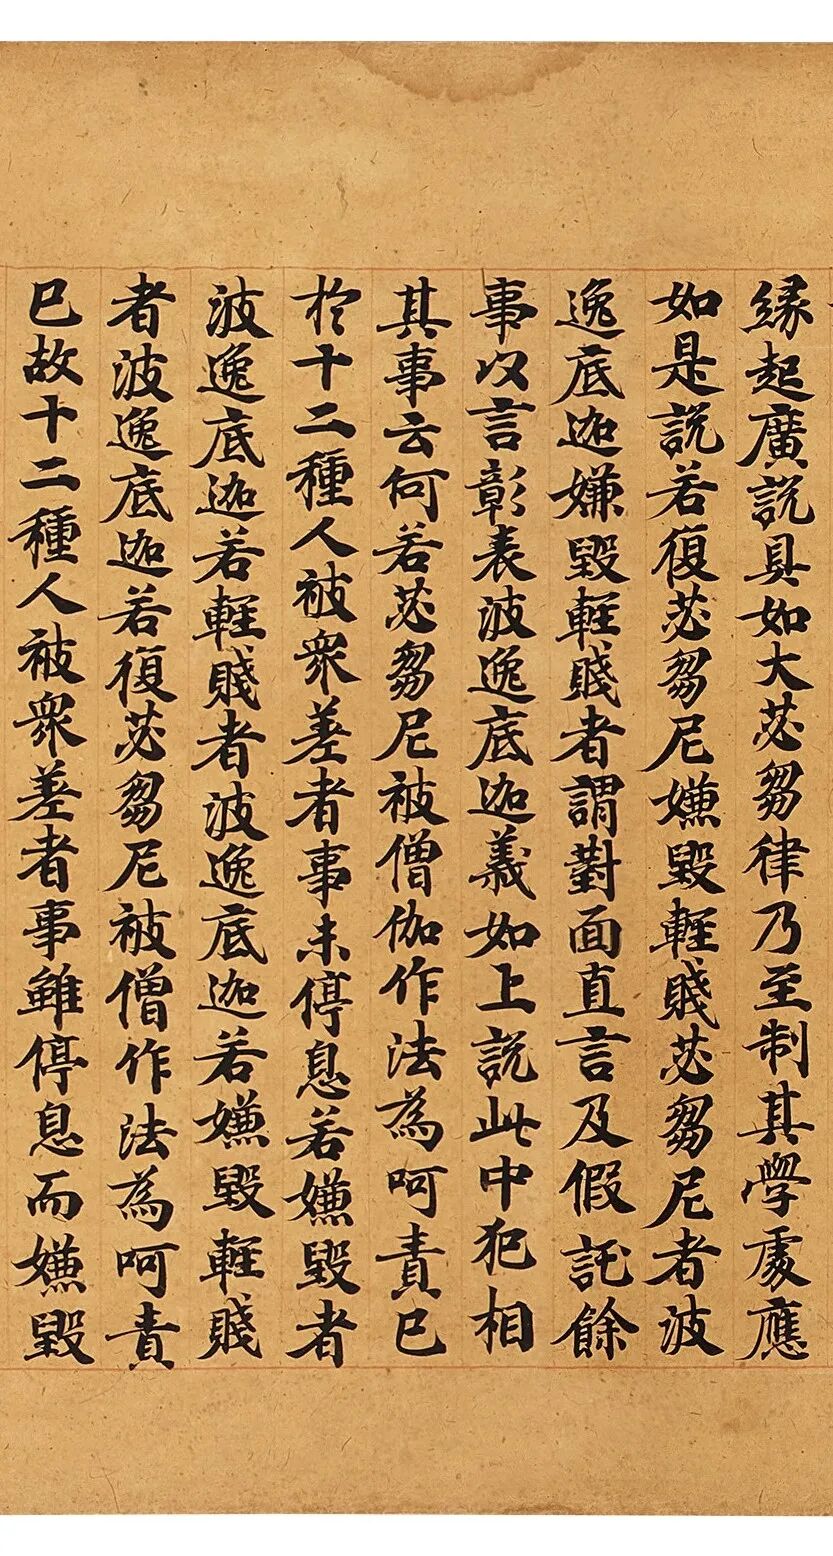 縁起廣説具如大苾芻律乃至制其學處應
如是説若復苾芻尼嫌毀輕賤苾芻尼者波
逸底迦嫌毀輕賤者謂對面直言及假託餘
事以言彰表波逸底迦義如上説此中犯相
其事云何若苾芻尼被僧伽作法為呵責已
於十二種人被衆差者事未停息若嫌毀者
波逸底迦若輕賤者波逸底迦若嫌毀輕賤
者波逸底迦若復苾芻尼被僧作法為呵責
已故十二種人被衆差者事雖停息而嫌毀